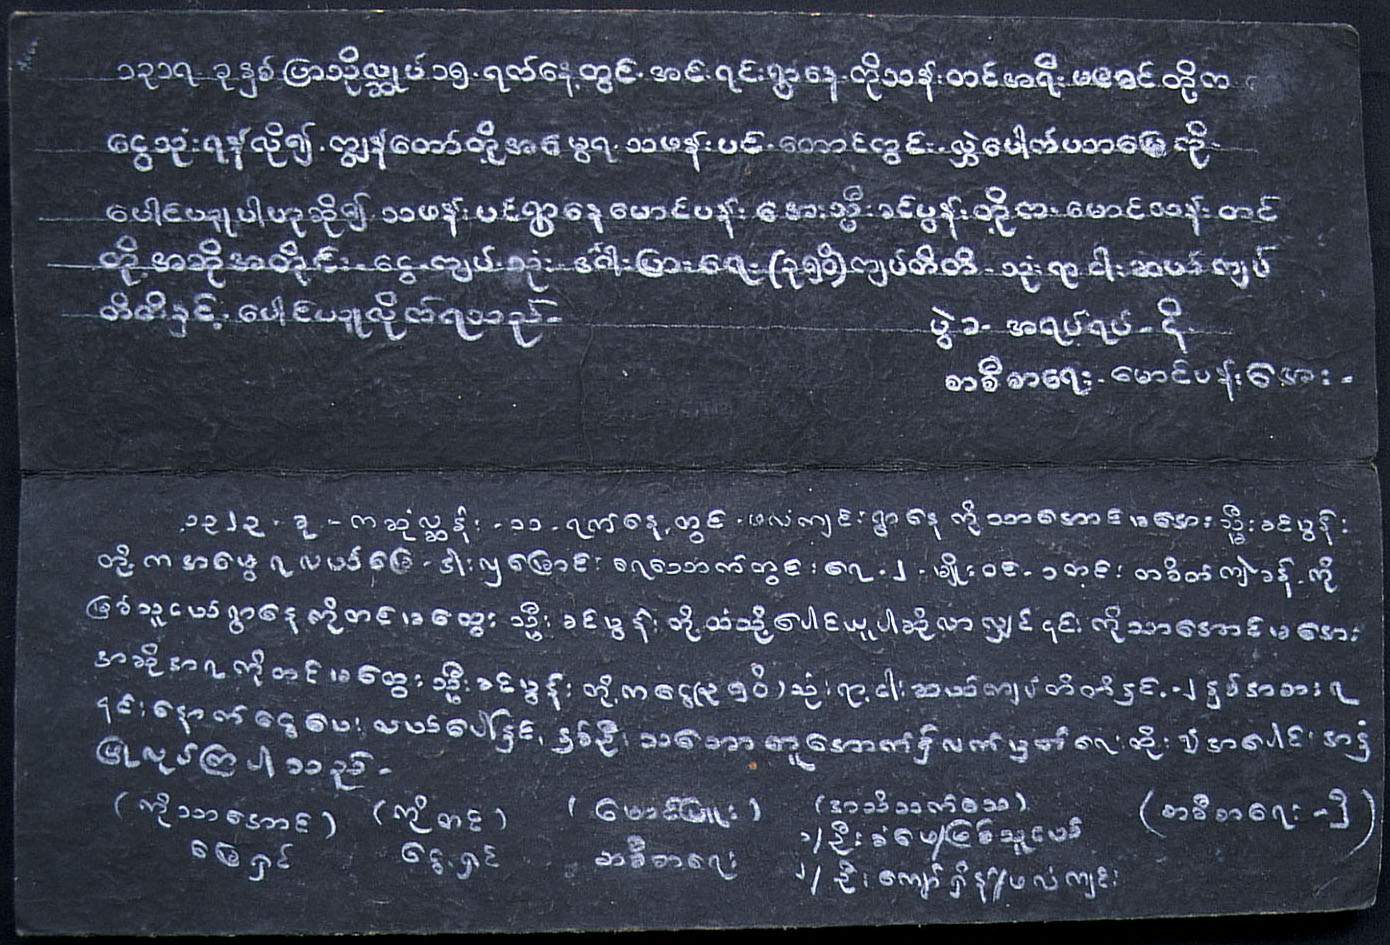 ၁၃၁၇ ခုနှစ် ပြာသိုလ္ဆုပ် ၁၅ ရက်နေ့တွင် အင်းရင်းရွာနေ ကိုသန်းတင် အရီး တို့က
ငွေသုံးရန်လို၍ ကျွန်တော်တို့အမွေရ သဖန်းပင် တောင်တွင်း လှဲပေါက်ပဘမြေကို
ပေါင်ပယူပါဟုဆို၍ သဖန်းပင်ရွာနေ မောင်ပန်းအေး သ္မီးခင်ပွန်းတို့ငား မောင်သန်းတင်
တို့အဆိုအတိုင်း ငွေကျပ်သုံး ဒင်္ဂါးပြားရေး (၃၅၀ိ) ကျပ်တိတိ သုံးရာငါးဆယ်ကျပ်
တိတိနှင့် ပေါင်ပယူလိုက်ရသည်
ပွဲခ အရပ်ရပ် ၎ိ
စာစီစာရေး မောင်ပန်းအေး
၁၃၂၃ ခု ကဆုံလ္ဆန်း ၁၁ ရက်နေ့တွင် ဖလံကျင်းရွာနေ ကိုသာအောင် မအေး သ္မီးခင်ပွန်း
တို့က အမွေရလယ်မြေ ရေသောက်တွင်းရေ ၂ မျိုးဝင် ၁ တင်း တစိတ်ကျဲခန့်ကို
မြစ်သူငယ်ရွာနေ ကိုတင် မထွေး သ္မီးခင်ပွန်းတို့ထံသို့ ပေါင်ယူပါဆိုလာလျှင် ၎င်းကိုသာအောင် မအေး
အဆိုအရ ကိုတင် မထွေး သ္မီးခင်ပွန်းတို့က ငွေ (၃၅၀ိ) သုံးရာငါးဆယ်ကျပ်တိတိနှင့် ၂ နှစ်အစားရ
၎င်းနောက် ငွေပေး လယ်ပေါ်နှင့် နှစ်ဦး သဘောတူအောက်၌ လက်မှတ်ရေးထိုး၍ အပေါင်းအနှံ
ပြုလုပ်ကြပါသည်
(ကိုသာအောင်) (ကိုတင်) (မောင်ဖြူး) (အသိသက်သေ) (စာစီစာရေး - ၁ိ)
မြေရှင် ငွေရှင် စာစီစာရေး ၁/ ဦးခံမေ/မြစ်သူငယ်
၂/ ဦးကျော်ရှိန်/ဖလံကျင်း